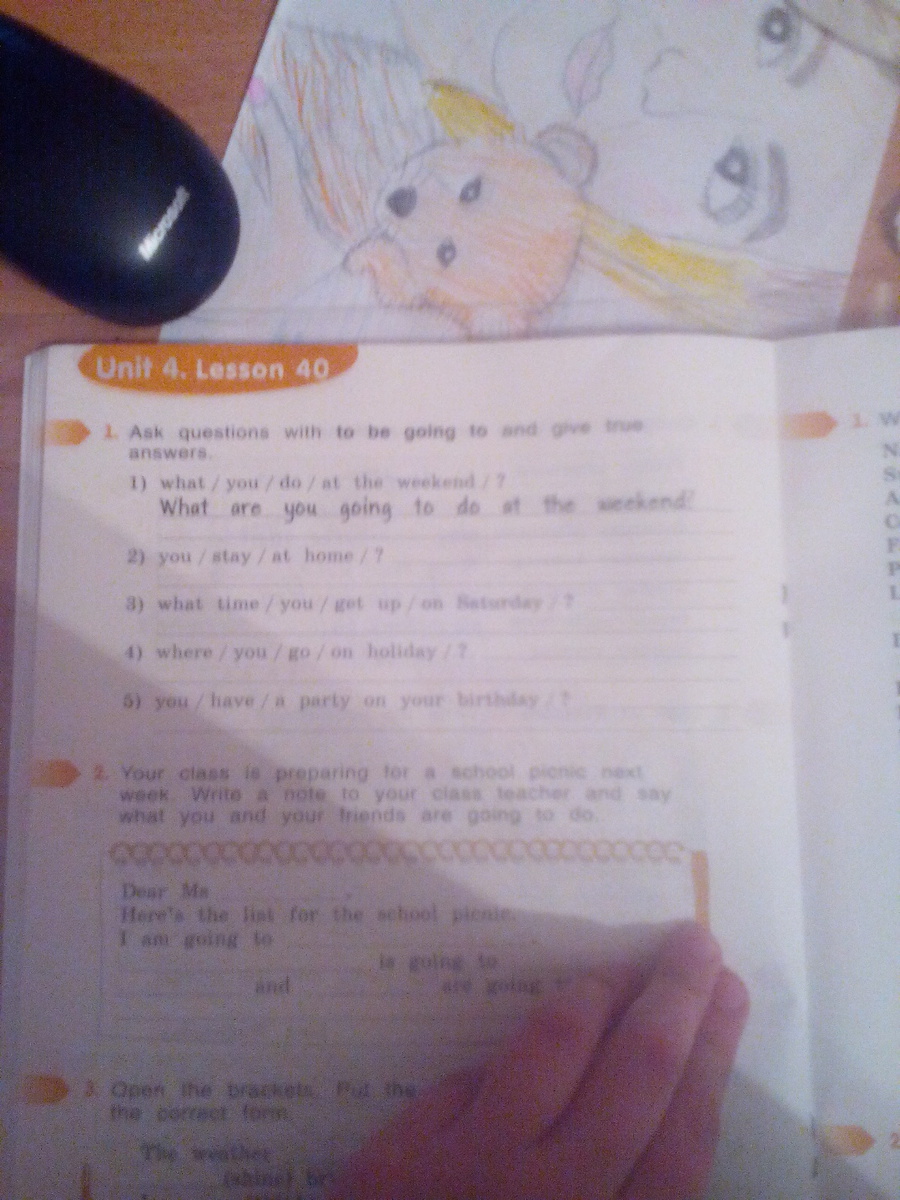 Microsoft
Unit 4. Lesson 40
1. Ask questions with to be going to and give true
answers.
1) what / you / do / at the weekend / ?
What are you going to do at the weekend?
2) you / stay / at home / ?
3) what time / you / get up / on Saturday / ?
4) where / you / go / on holiday / ?
5) you / have / a party on your birthday / ?
2. Your class is preparing for a school picnic next
week. Write a note to your class teacher and say
what you and your friends are going to do.
Dear Ms
Here's the list for the school picnic.
I am going to
is going to
and are going
3. Open the brackets. Put the
the correct form.
The weather
(shine)
1.
2